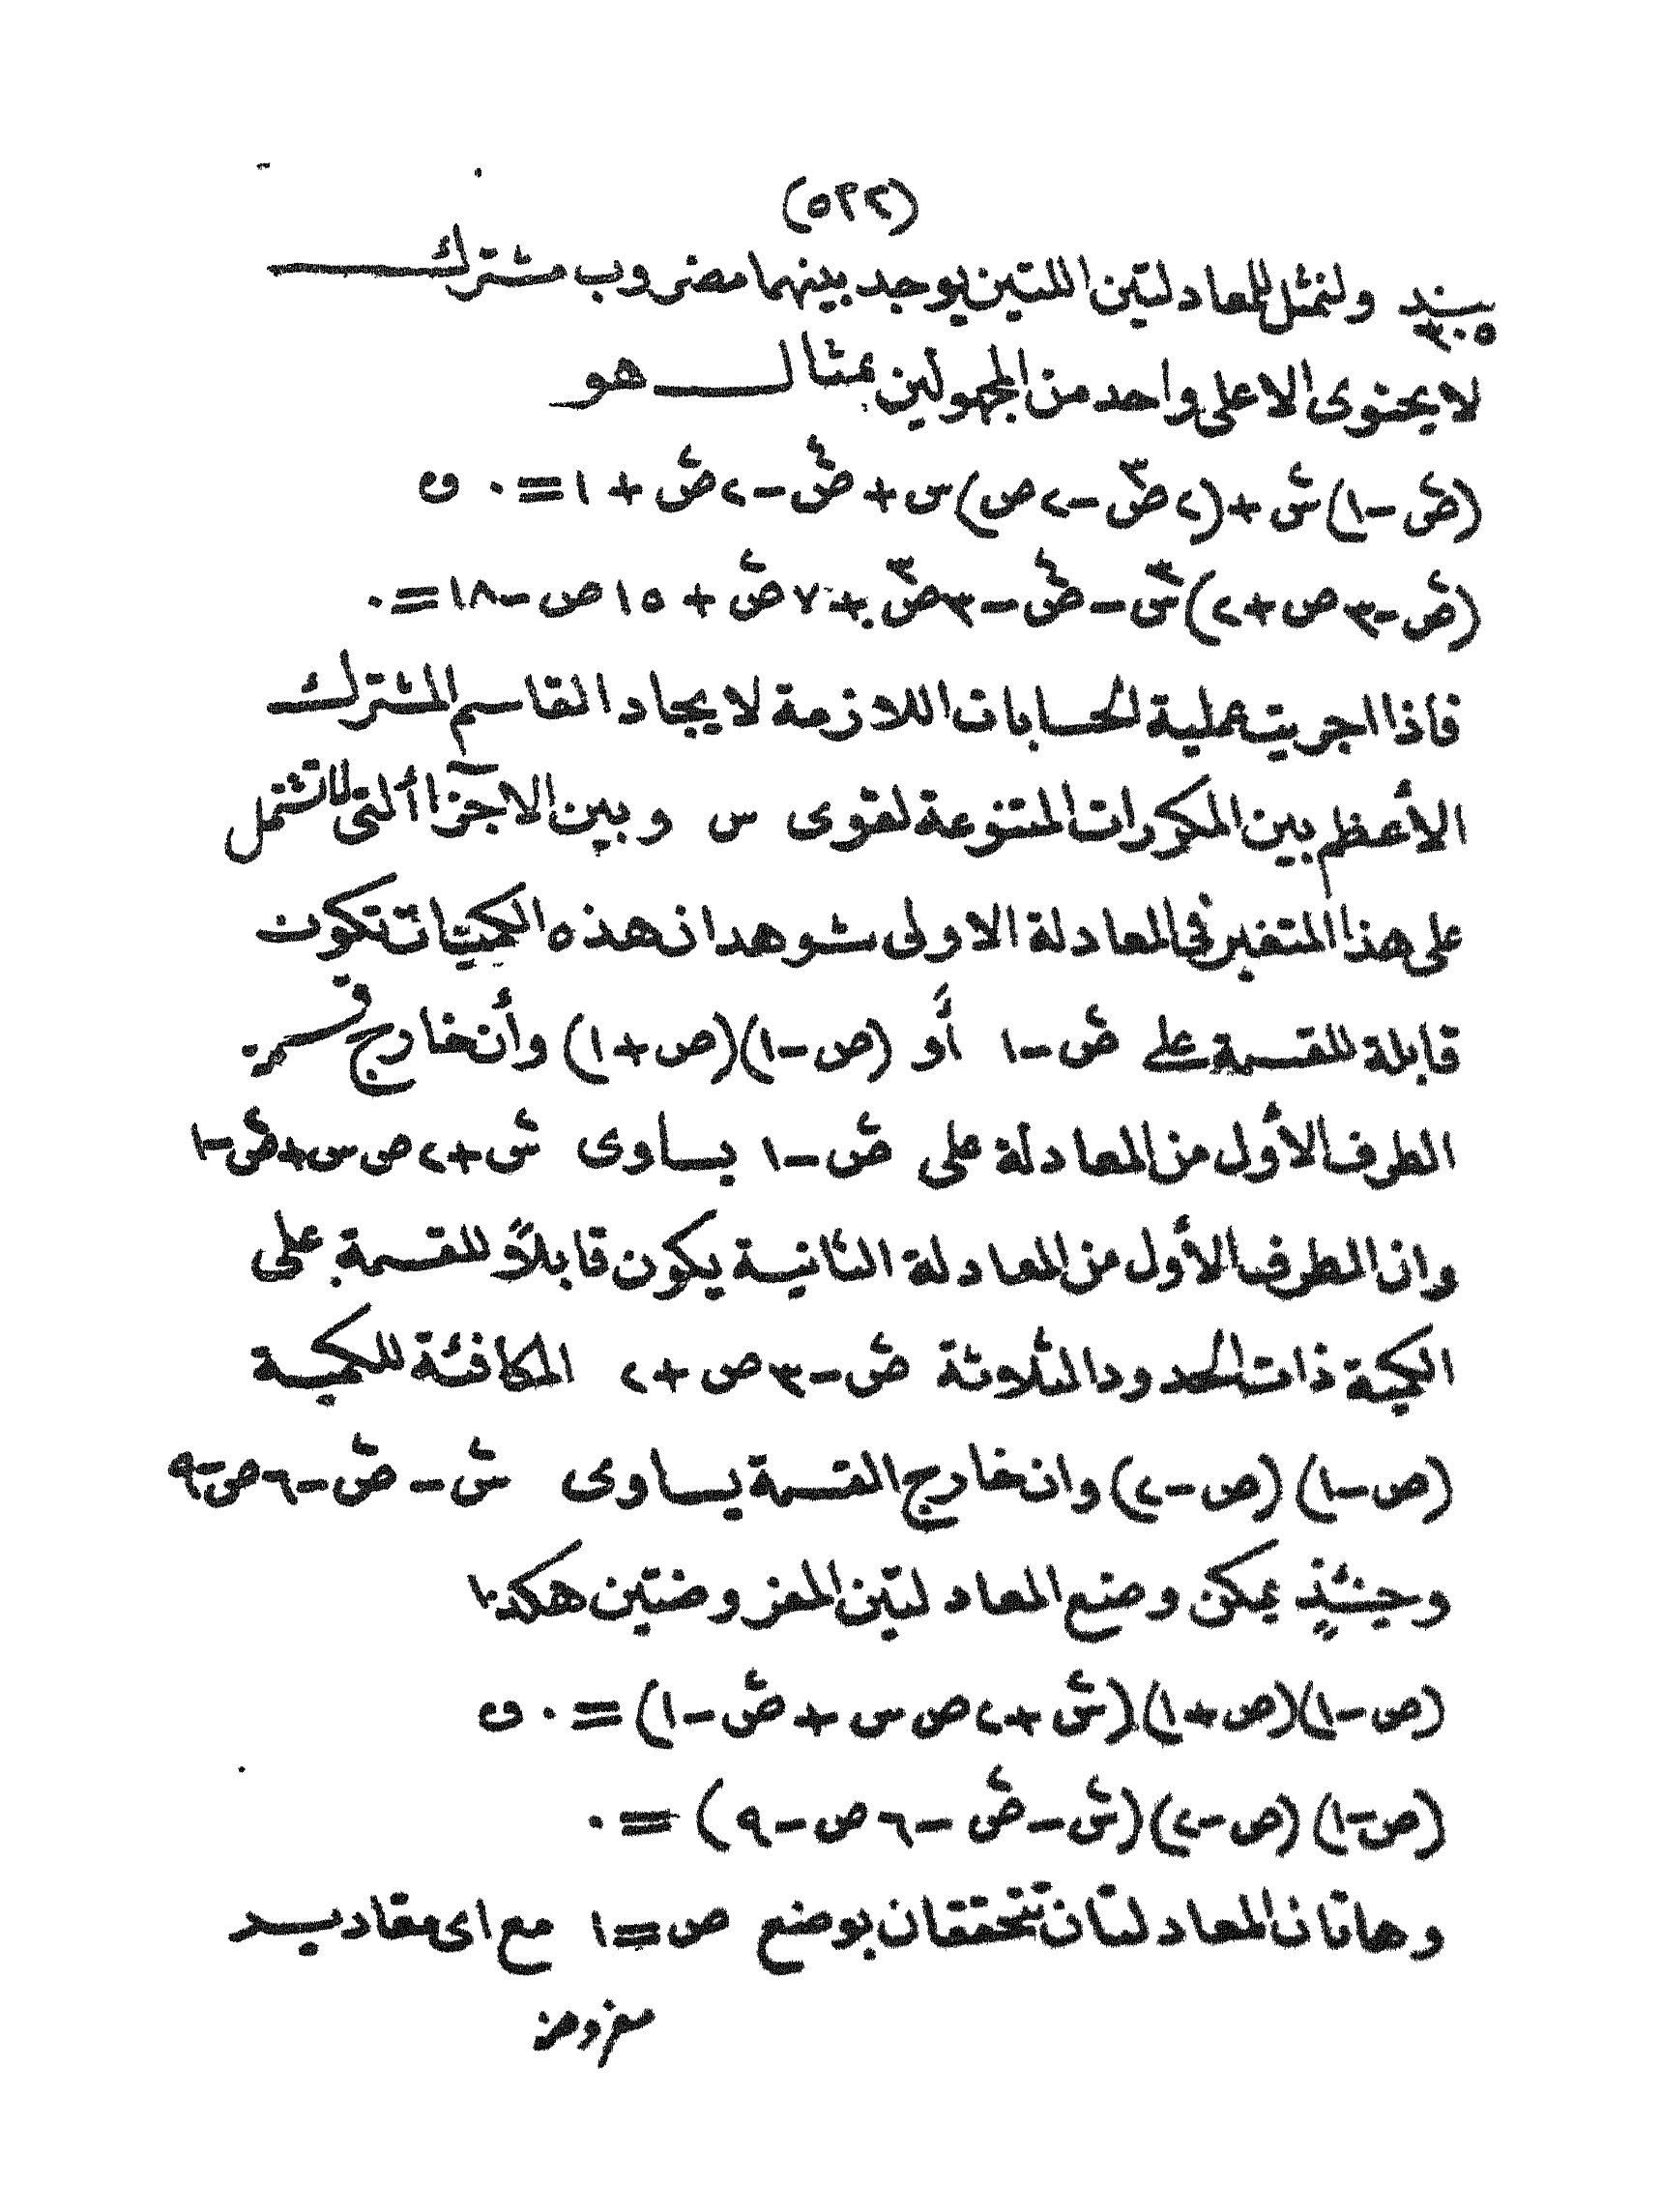 (٥٢٢)
بند ولنمثل للمعادلتين اللتين يوجد بينهما مضروب مشترك
٣٠٥
لا يحتوى الا على واحد من المجهولين بمثال هو
(ص٢-١)س٢+(٢ص٣-٢ص)س+ص٤-٢ص٢+١=٠ و
(ص٢-٣ص+٢)س٢-ص٤-٣ص٣+٧ص٢+١٥ص-١٨=٠
فاذا اجريت عملية الحسابات اللازمة لايجاد القاسم المشترك
الأعظم بين المكررات المتنوعة لقوى س وبين الاجزآ التى لا تشتمل
على هذا المتغير فى المعادلة الاولى شوهد ان هذه الكميات تكون
قابلة للقسمة على ص٢-١ أو (ص-١)(ص+١) وأن خارج قسمة
الطرف الأول من المعادلة على ص٢-١ يساوى س٢+٢ص س+ص٢-١
وان الطرف الأول من المعادلة الثانية يكون قابلاً للقسمة على
الكمية ذات الحدود الثلاثة ص٢-٣ص+٢ المكافئة للكمية
(ص-١)(ص-٢) وان خارج القسمة يساوى س٢-ص٢-٦ص-٩
وحينئذٍ يمكن وضع المعادلتين المفروضتين هكذا
(ص-١)(ص+١)(س٢+٢ص س+ص٢-١)=٠ و
(ص-١)(ص-٢)(س٢-ص٢-٦ص-٩)=٠
وهاتان المعادلتان تتحققان بوضع ص=١ مع اى مقادير
مفروضة